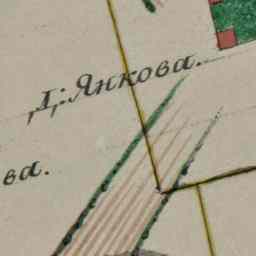 Д: Янкова.
ва.